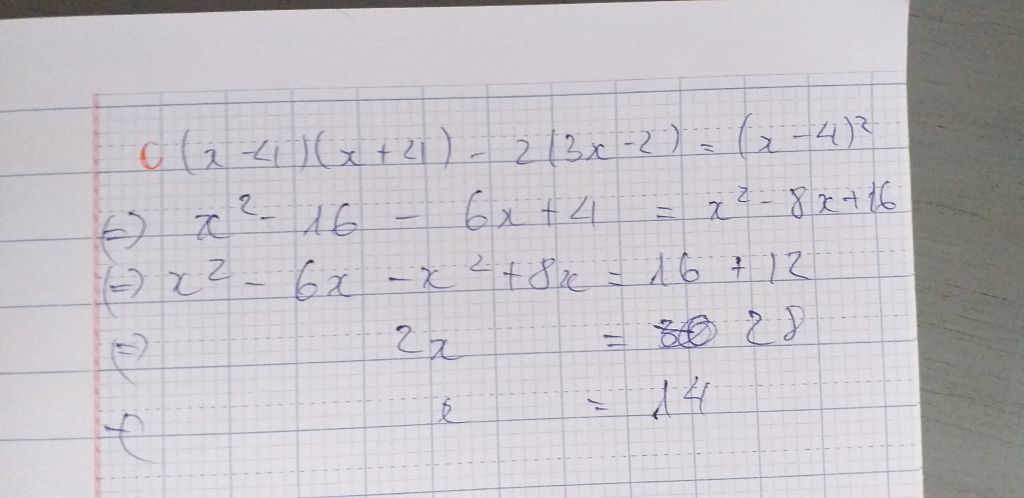 c (x-4)(x+4) - 2(3x-2) = (x-4)²
⇔ x² - 16 - 6x+4 = x² - 8x+16
⇔ x² - 6x - x² + 8x = 16 + 12
⇔ 2x = 28
= 14